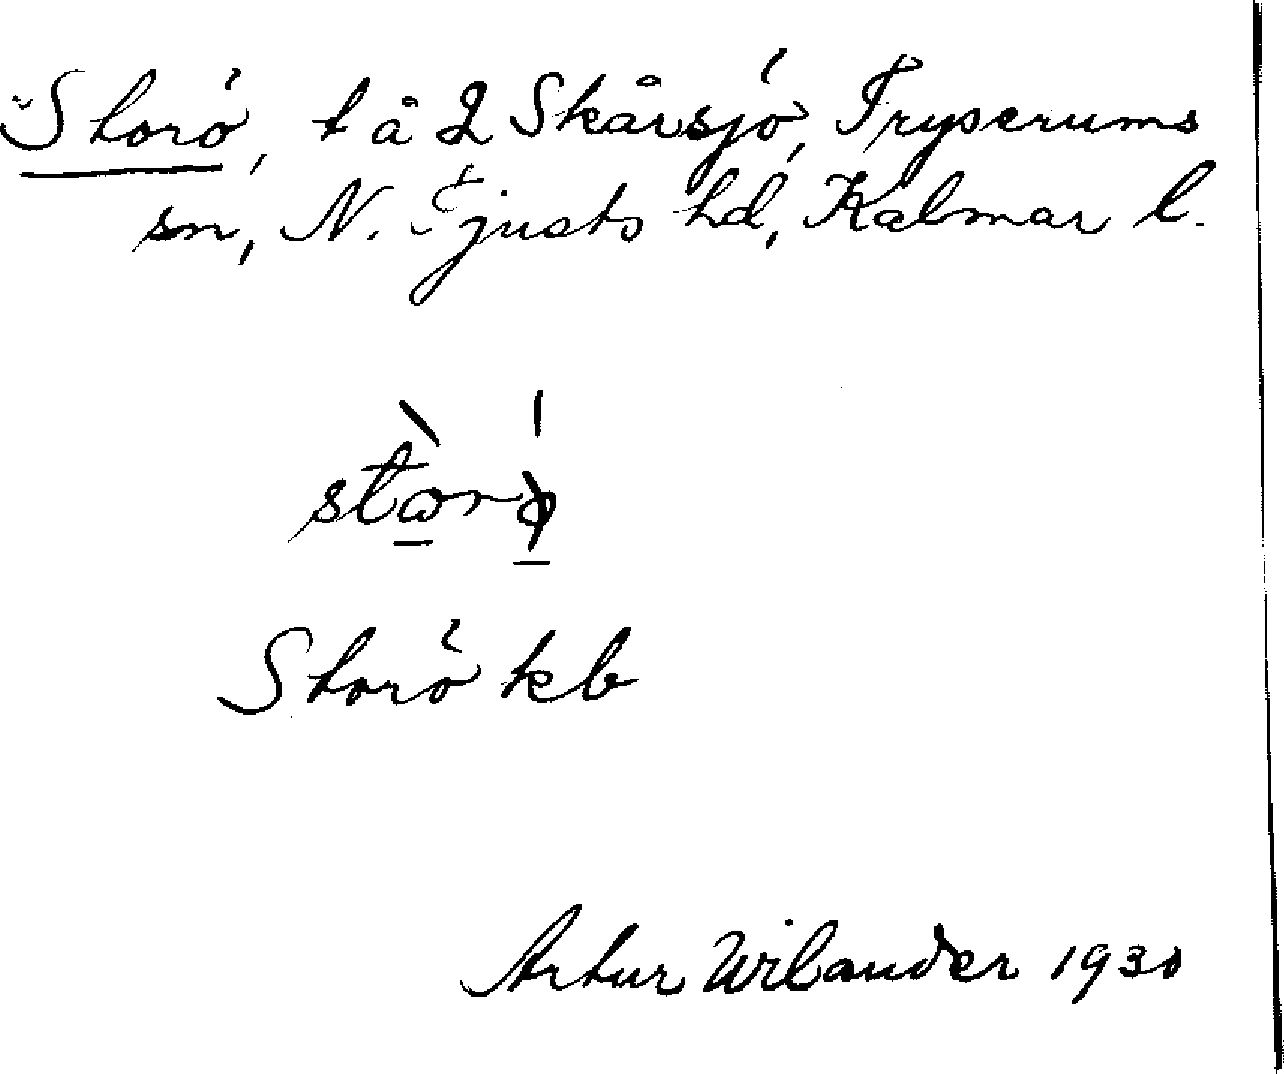 Storö, t å 2 Skårsjö, Tryserums
sn, N. Tjusts hd, Kalmar l.
störö̀
Storö kb
Artur Wilander 1930